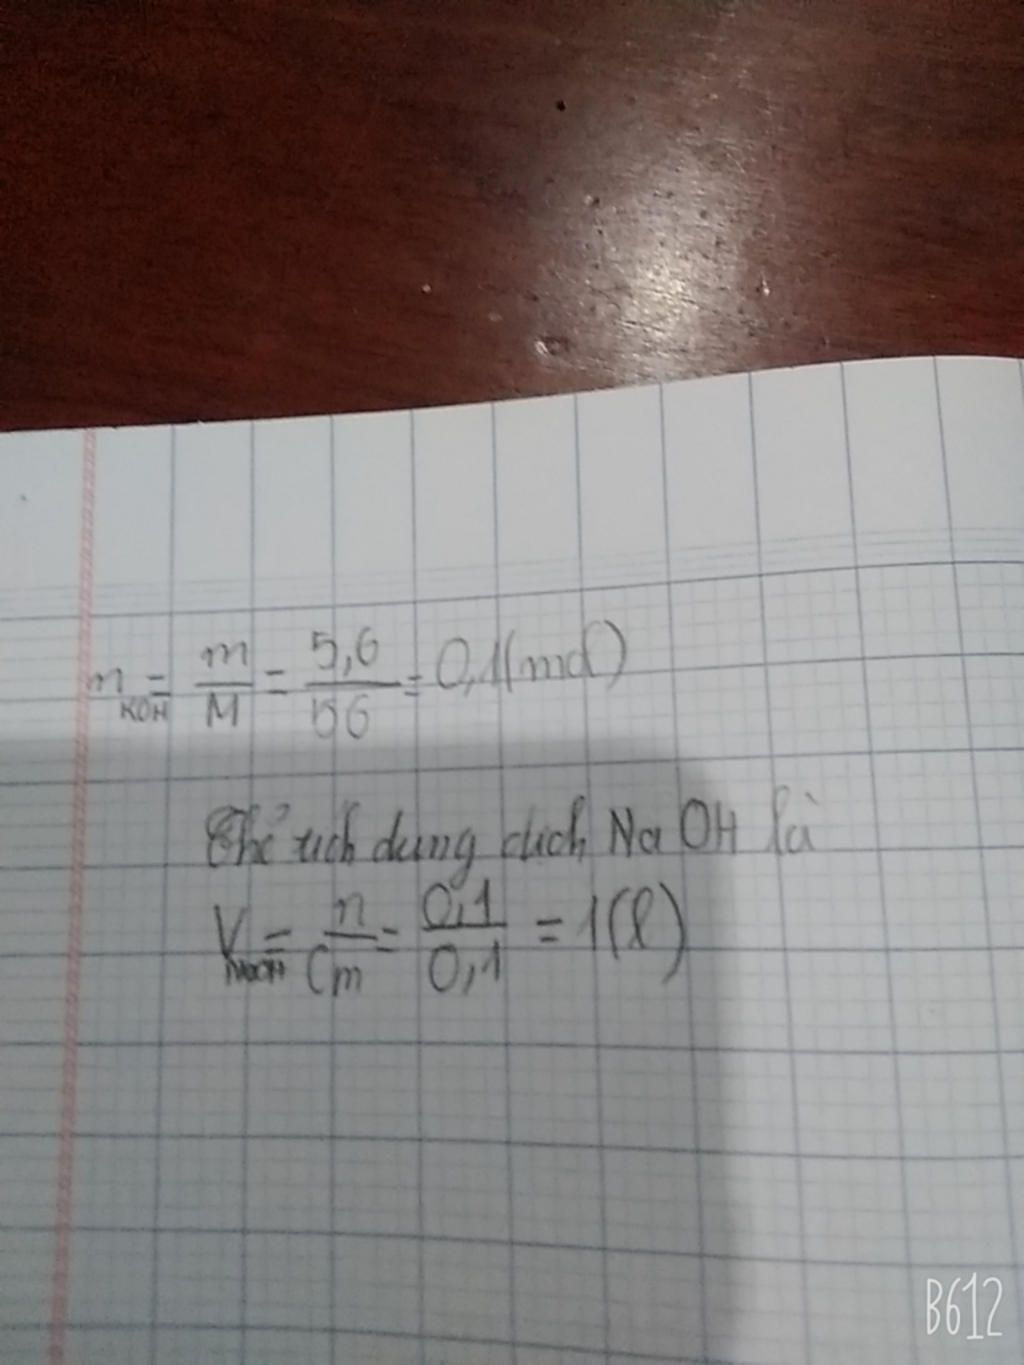 n KOH = m/M = 5,6/56 = 0,1(mol)
Thể tích dung dịch NaOH là
V NaOH = n/Cm = 0,1/0,1 = 1(l)
B612